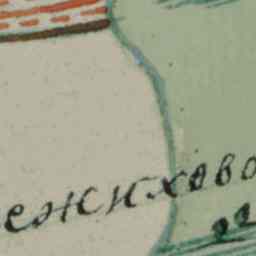 ежихово